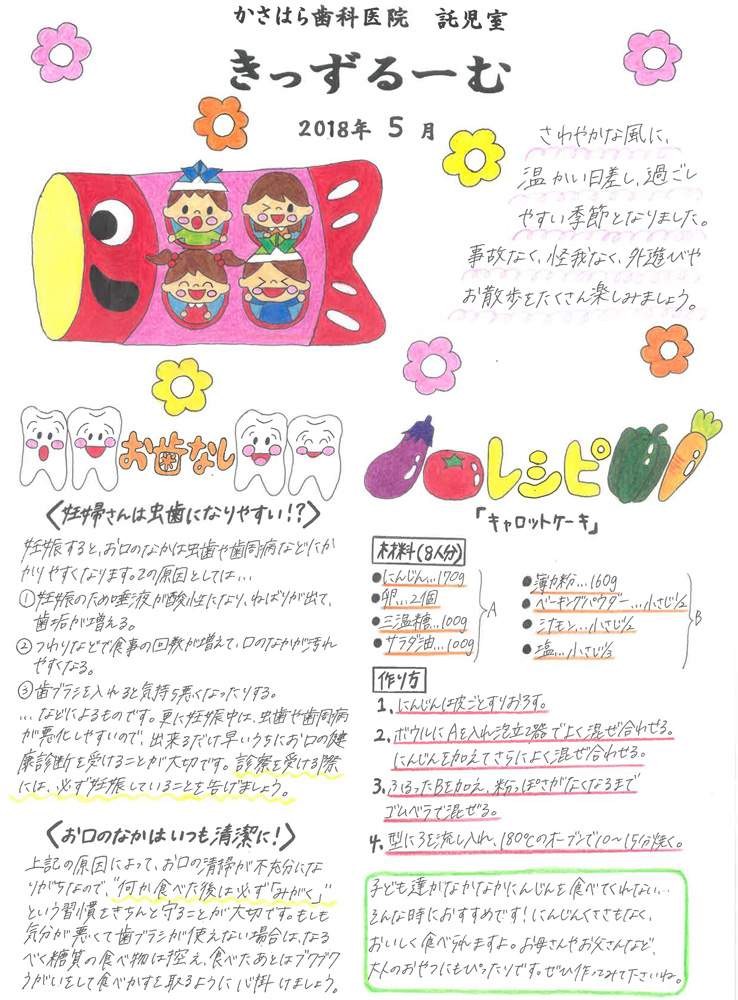 かさはら歯科医院 託児室
きっずるーむ
2018年 5 月
さわやかな風に、
温かい日差し、過ごし
やすい季節となりました。
事故なく、怪我なく、外遊びや
お散歩をたくさん楽しみましょう。
お歯なし
〈妊婦さんは虫歯になりやすい!?〉
妊娠すると、お口のなかは虫歯や歯周病などにか
かりやすくなります。2の原因としては…
①妊娠のため唾液が酸性になり、ねばりが出て、
歯垢が増える。
②つわりなどで食事の回数が増えて、口のなかが汚れ
やすくなる。
③歯ブラシを入れると気持ち悪くなったりする。
…などによるものです。更に妊娠中は、虫歯や歯周病
が悪化しやすいので、出来るだけ早いうちにお口の健
康診断を受けることが大切です。診察を受ける際
には、必ず妊娠していることを告げましょう。
〈お口のなかはいつも清潔に!〉
上記の原因によって、お口の清掃が不充分にな
りがちなので、“何か食べた後は必ず「みがく」”
という習慣をきちんと守ることが大切です。もしも
気分が悪くて歯ブラシが使えない場合は、なる
べく糖質の食べ物は控え、食べたあとはブクブク
うがいをして食べかすを取るように心掛けましょう。
レシピ
『キャロットケーキ』
材料(8人分)
●にんじん…170g
●卵…2個
●三温糖…100g
●サラダ油…100g
A
●薄力粉…160g
●ベーキングパウダー…小さじ1/2
●シナモン…小さじ1/2
●塩…小さじ1/3
B
作り方
1.にんじんは皮ごとすりおろす。
2.ボウルにAを入れ泡立て器でよく混ぜ合わせる。
にんじんを加えてさらによく混ぜ合わせる。
3.ふるったBを加え、粉っぽさがなくなるまで
ゴムベラで混ぜる。
4.型に3を流し入れ、180℃のオーブンで10~15分焼く。
子ども達がなかなかにんじんを食べてくれない…
そんな時におすすめです!にんじんくささもなく、
おいしく食べられますよ。お母さんやお父さんなど、
大人のおやつにもぴったりです。ぜひ作ってみて下さいね。